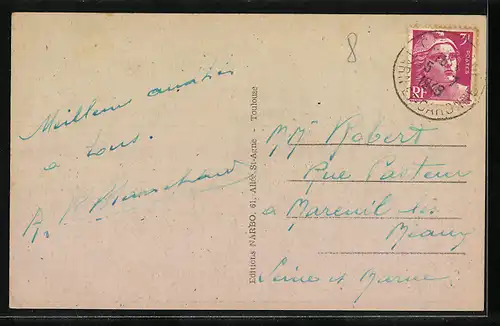 Meilleures amitiés
à tous.
Blanchard
Editions NARBO, 61, Allée St-Agne - Toulouse
8
3F
POSTES
RF
Mr Robert
Rue Pasteur
à Mareuil les
Meaux
Seine et Marne